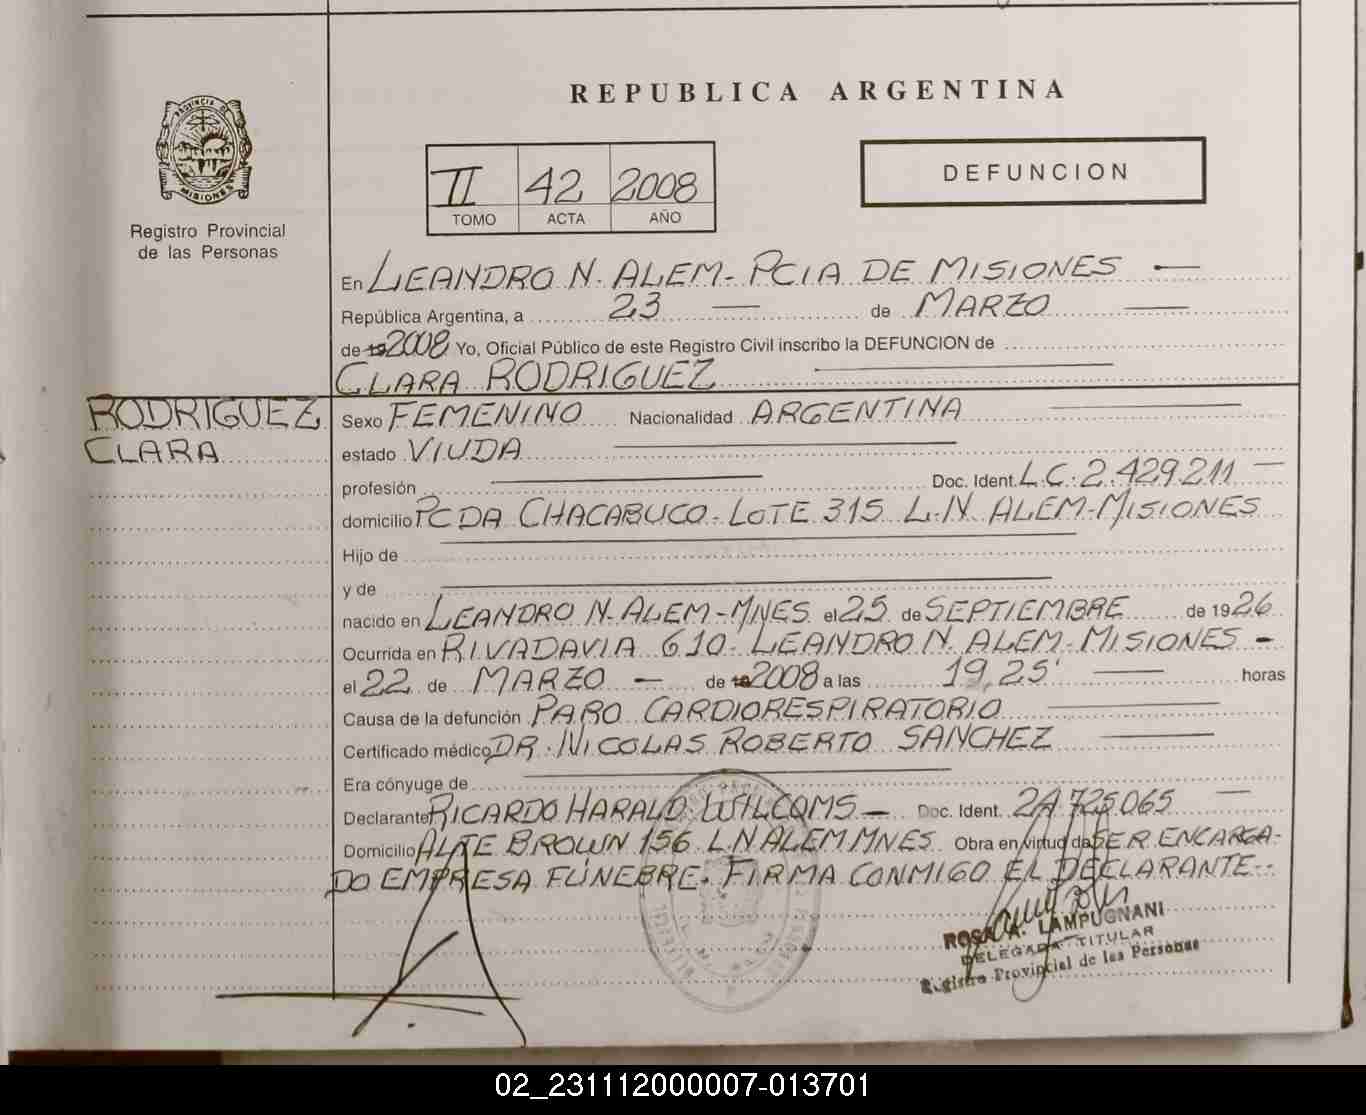 REPUBLICA ARGENTINA
PROVINCIA DE
MISIONES
Registro Provincial
de las Personas
II 42 2008
TOMO ACTA AÑO
DEFUNCION
En LEANDRO N. ALEM - PCIA DE MISIONES —
República Argentina, a 23 — de MARZO —
de 19 2008 Yo, Oficial Público de este Registro Civil inscribo la DEFUNCION de
CLARA RODRIGUEZ
RODRIGUEZ
CLARA
Sexo FEMENINO Nacionalidad ARGENTINA
estado VIUDA
profesión Doc. Ident. L.C. 2.429.211 —
domicilio PCDA CHACABUCO - LOTE 315 L.N. ALEM - MISIONES
Hijo de
y de
nacido en LEANDRO N. ALEM - MNES el 25 de SEPTIEMBRE de 1926
Ocurrida en RIVADAVIA 610 - LEANDRO N. ALEM - MISIONES -
el 22 de MARZO — de 19 2008 a las 19,25' — horas
Causa de la defunción PARO CARDIORESPIRATORIO
Certificado médico DR. NICOLAS ROBERTO SANCHEZ
Era cónyuge de
Declarante RICARDO HARALD WILCOMS — Doc. Ident. 24.725.065 —
Domicilio ALTE BROWN 156 L.N ALEM MNES Obra en virtud de SER ENCARGA-
DO EMPRESA FÚNEBRE. FIRMA CONMIGO EL DECLARANTE--
ROSA A. LAMPUGNANI
DELEGADA TITULAR
Registro Provincial de las Personas
02_231112000007-013701